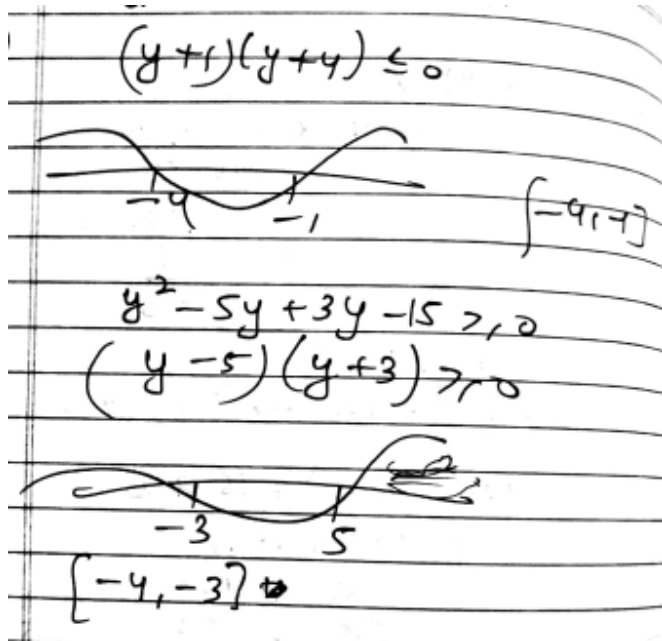 (y+1)(y+4) ≤ 0
-4 -1
[-4,-1]
y² - 5y + 3y - 15 ≥ 0
(y - 5)(y + 3) ≥ 0
-3 5
[-4, -3]